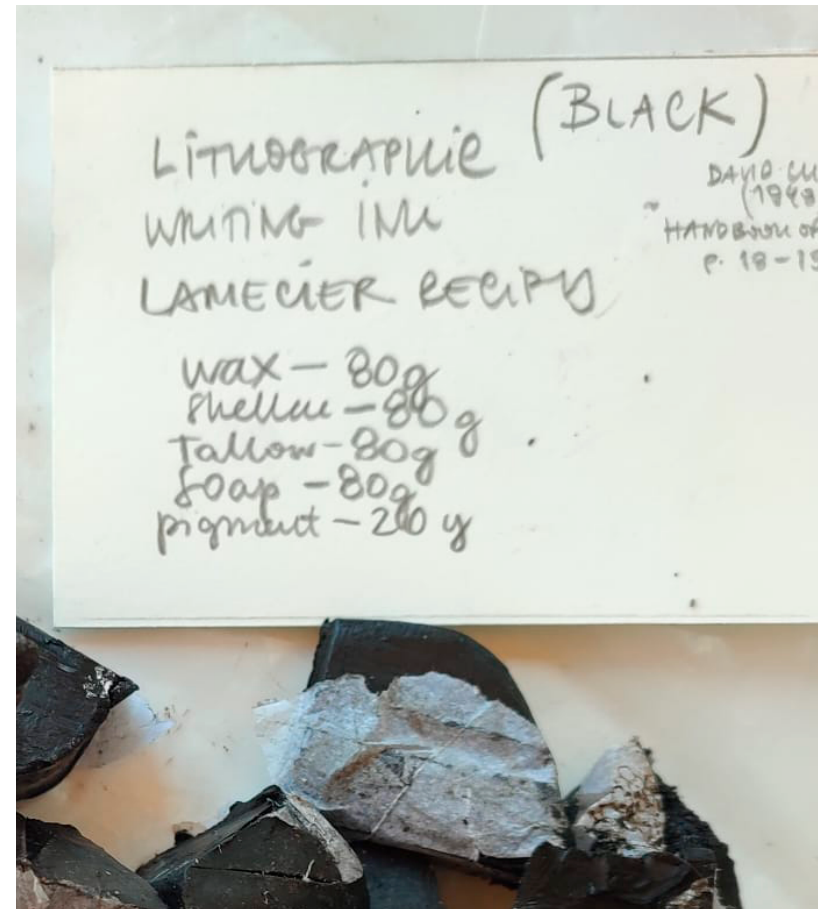 (BLACK)
LiTHOGRAPHiC
WRITING INK
LAMECIER RECIPY
DAVID CU
(1948
HANDBOOK OF
P. 18-19
wax - 80g
shellac - 80g
Tallow - 80g
Soap - 80g
pigment - 20 g